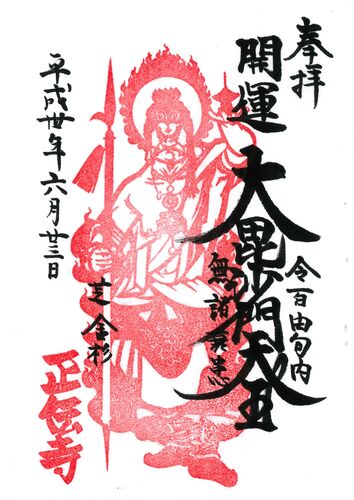 奉拝
開運
大毘沙門天王
令百由旬内
無諸衰患
芝金杉
正伝寺
平成卅年六月廿三日